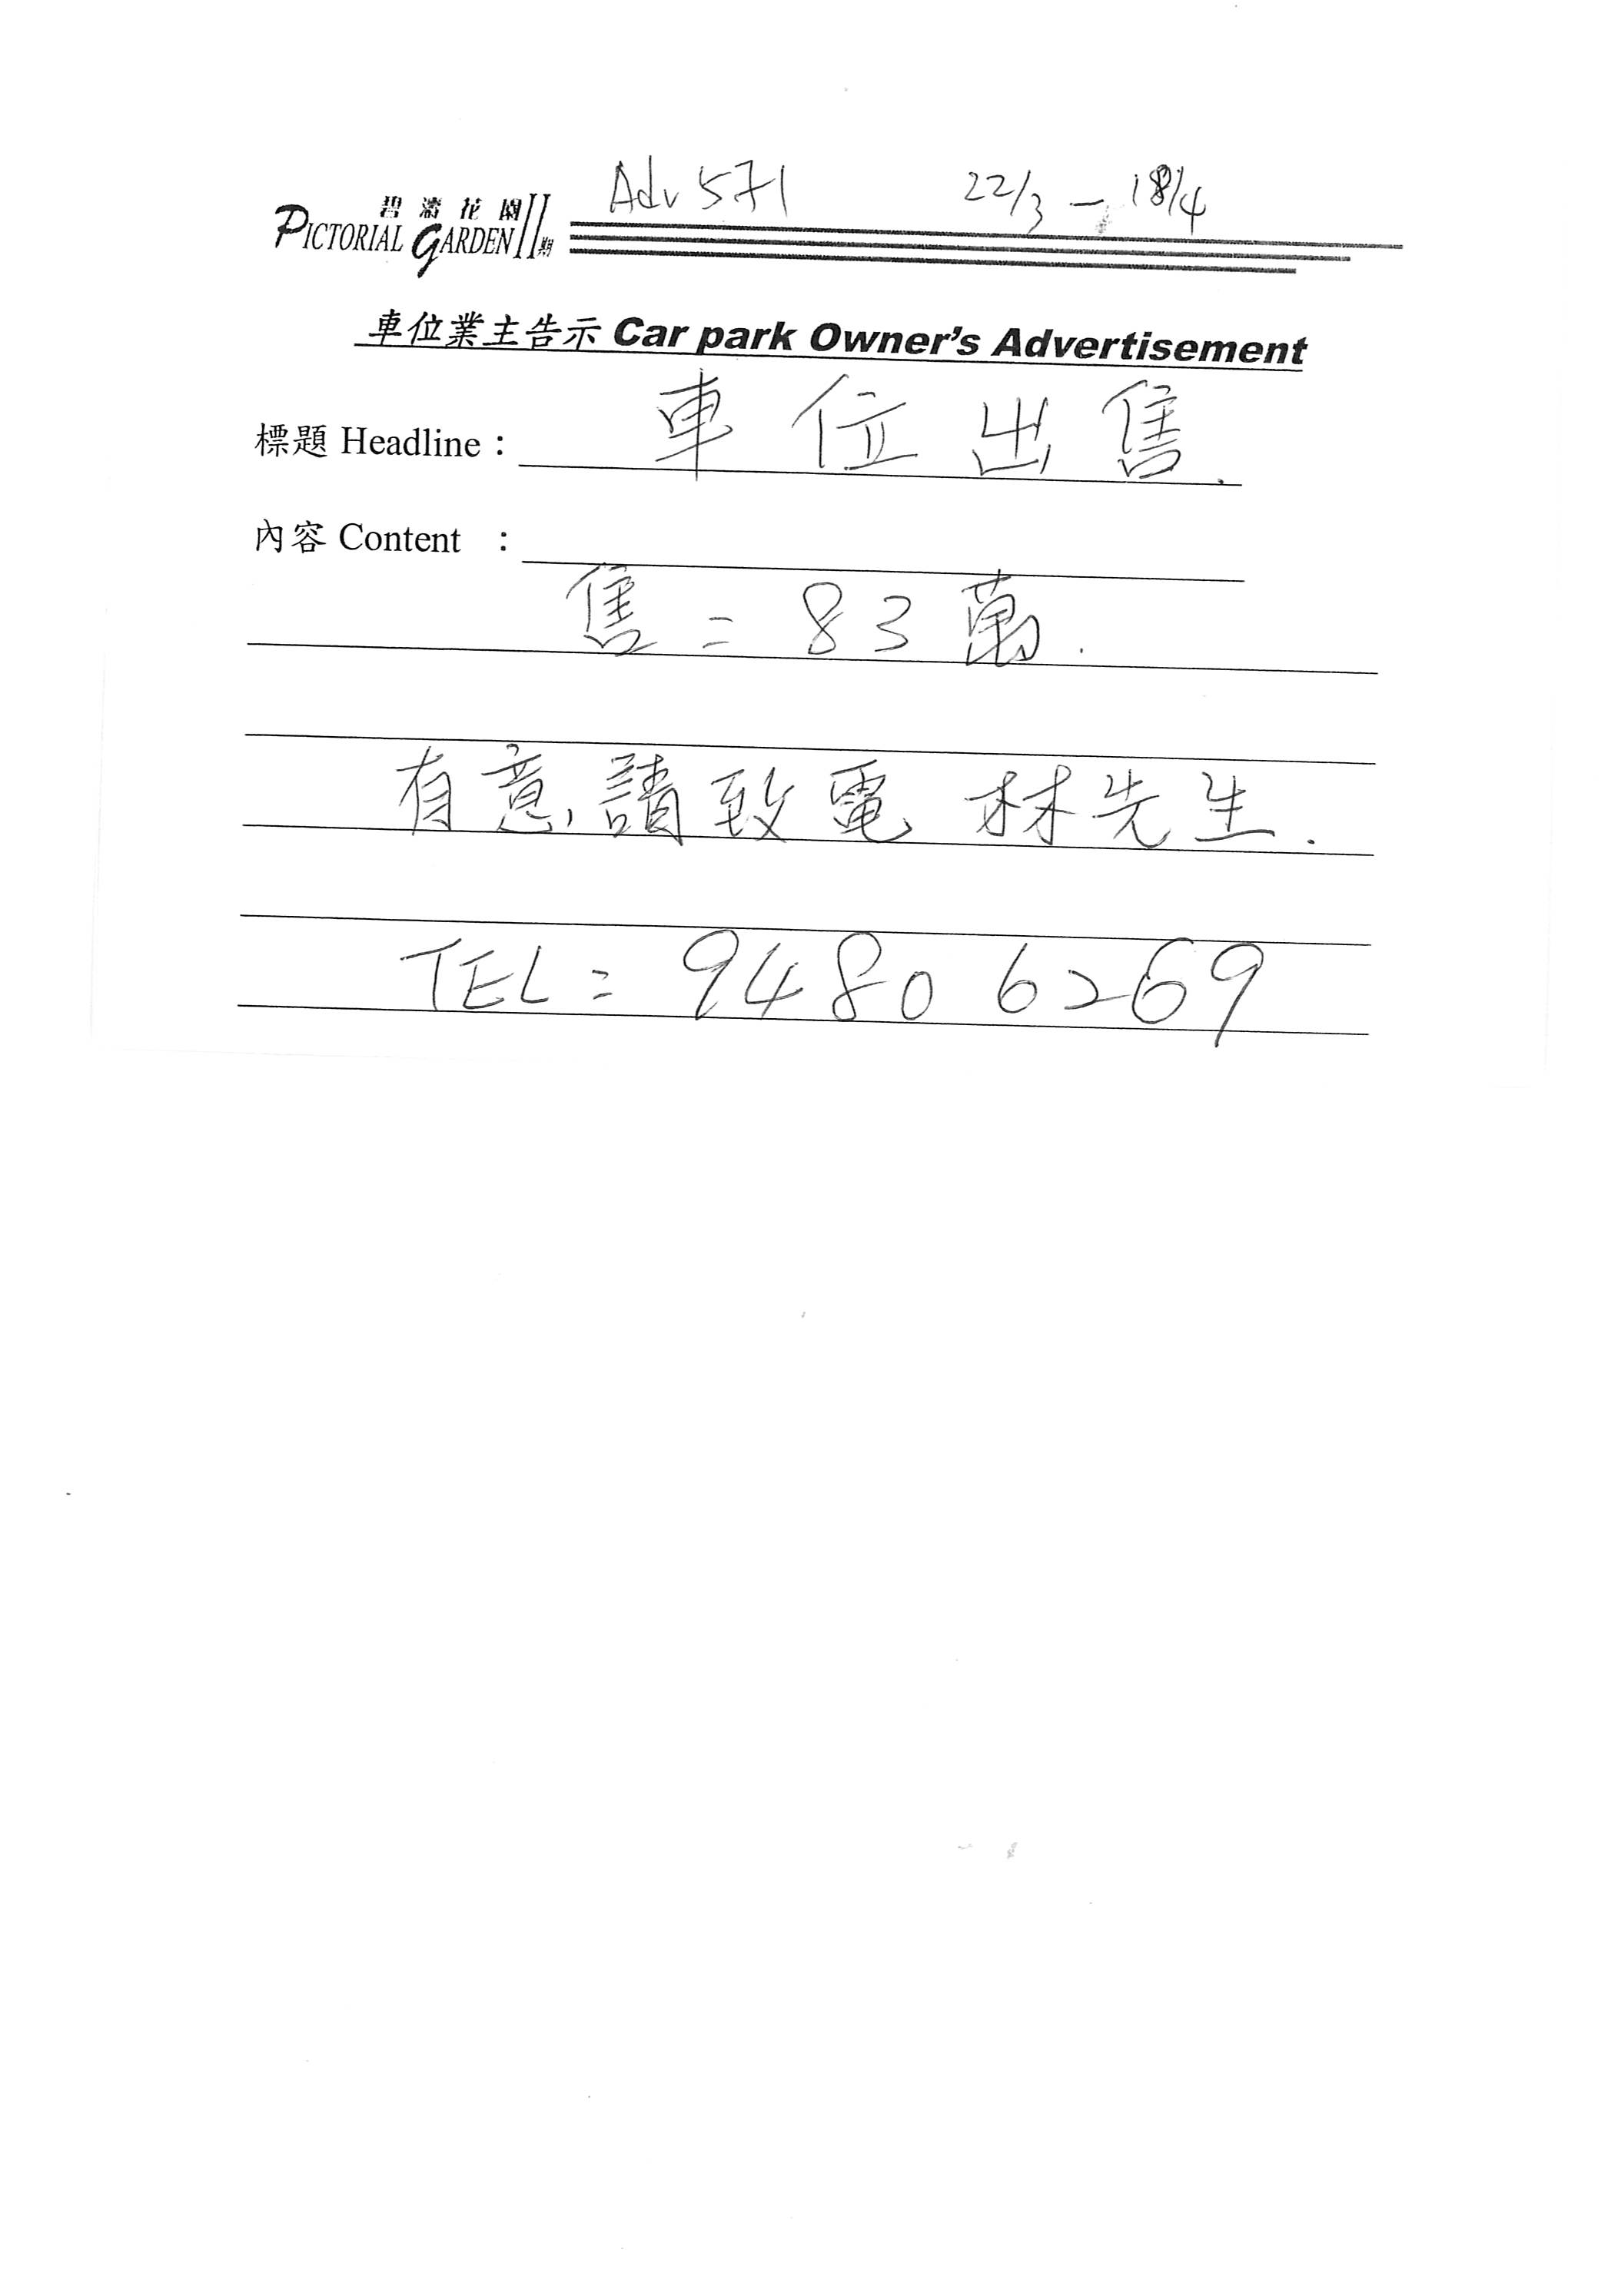 Adv 571 22/3 - 18/4
碧濤花園II期
PICTORIAL GARDEN
車位業主告示 Car park Owner's Advertisement
標題 Headline : 車位出售.
內容 Content :
售 = 83萬.
有意, 請致電 林先生.
TEL = 9480 6269